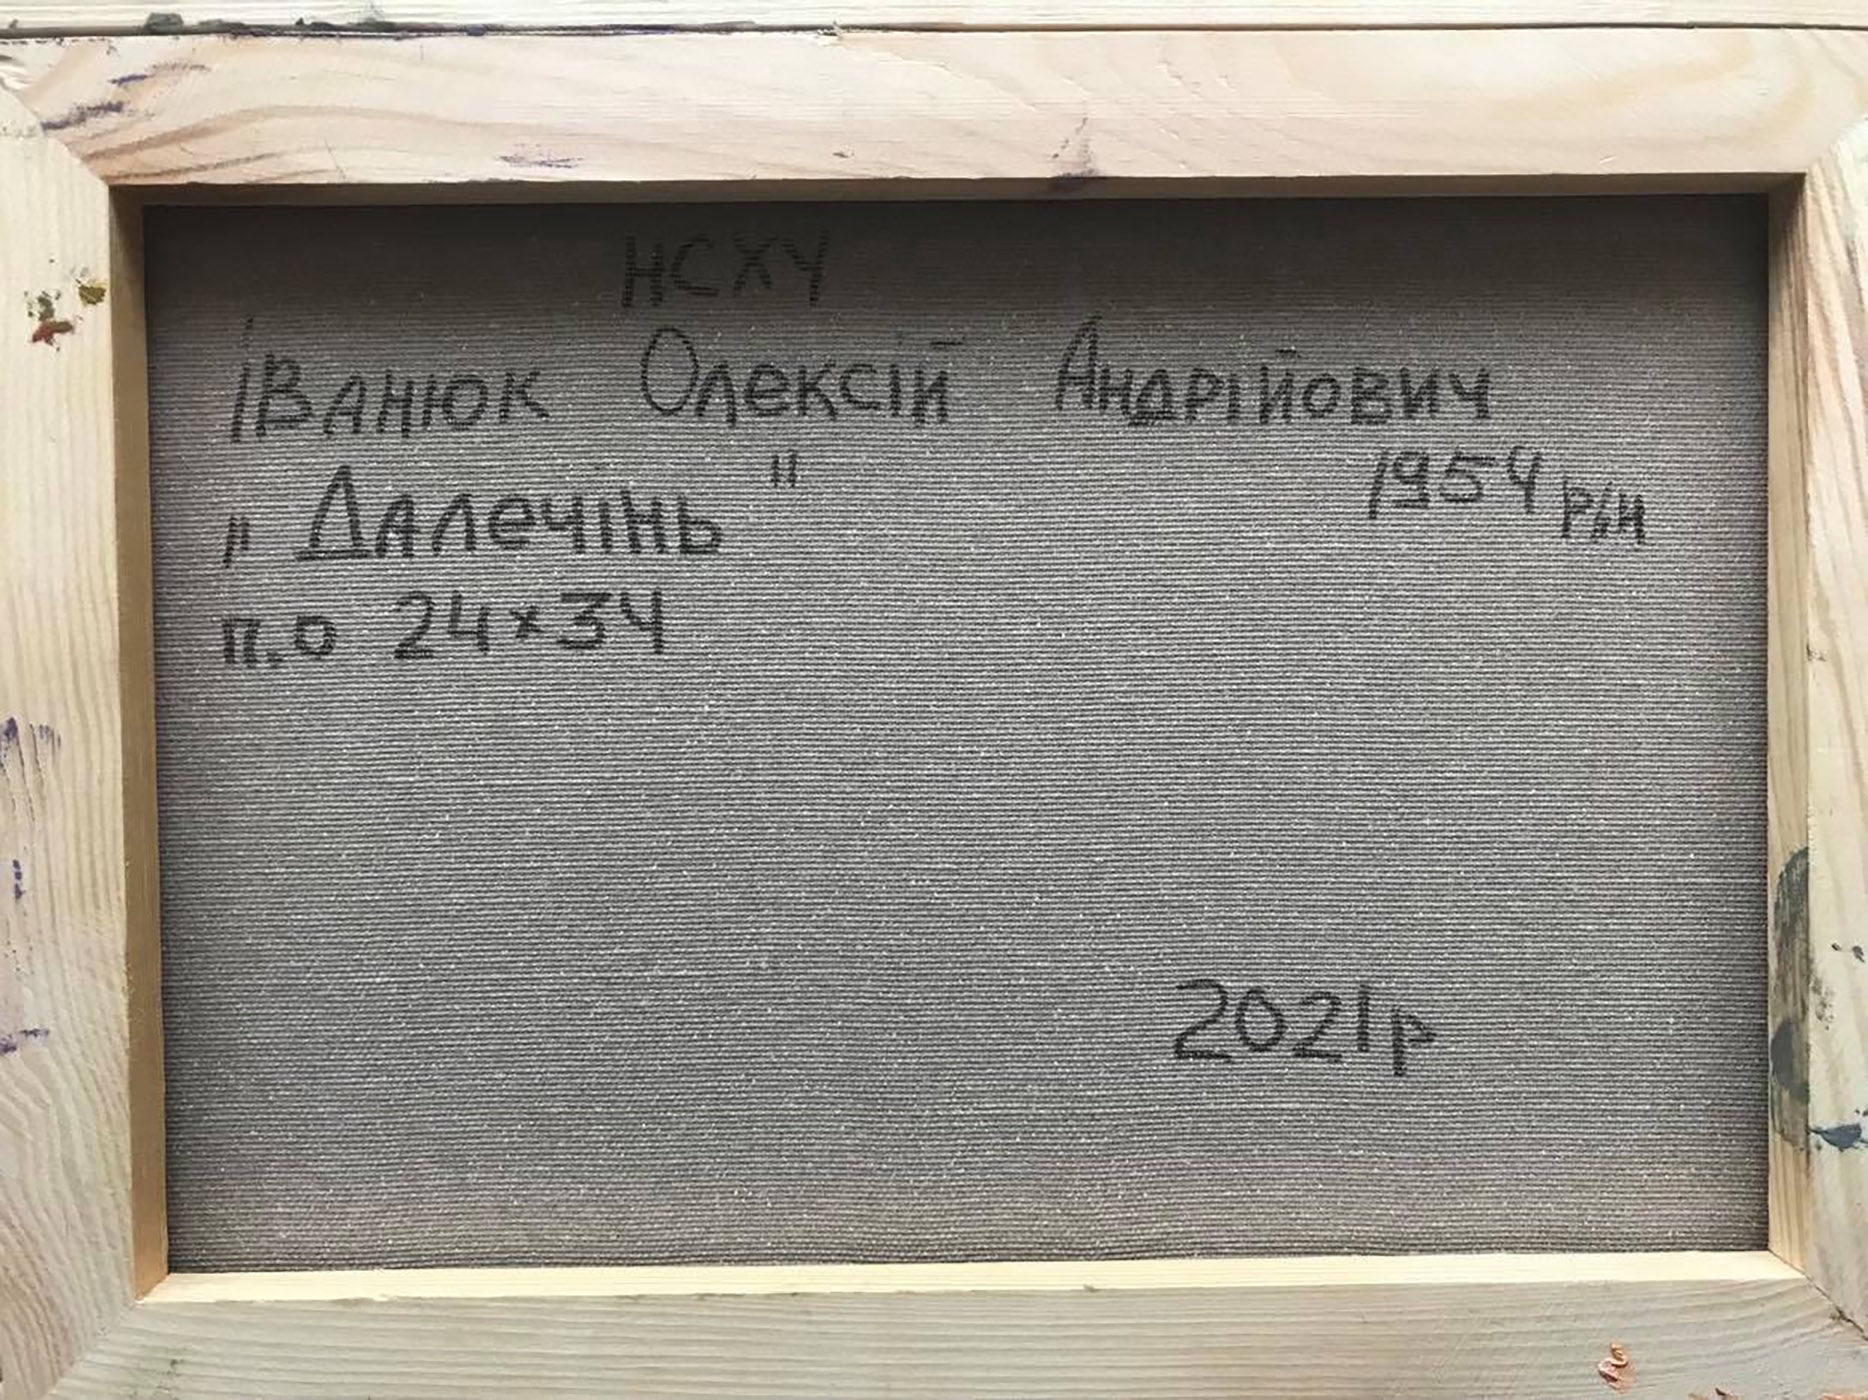 НСХУ
Іванюк Олексій Андрійович
1954 р/н
„Далечінь"
п.о 24×34
2021р